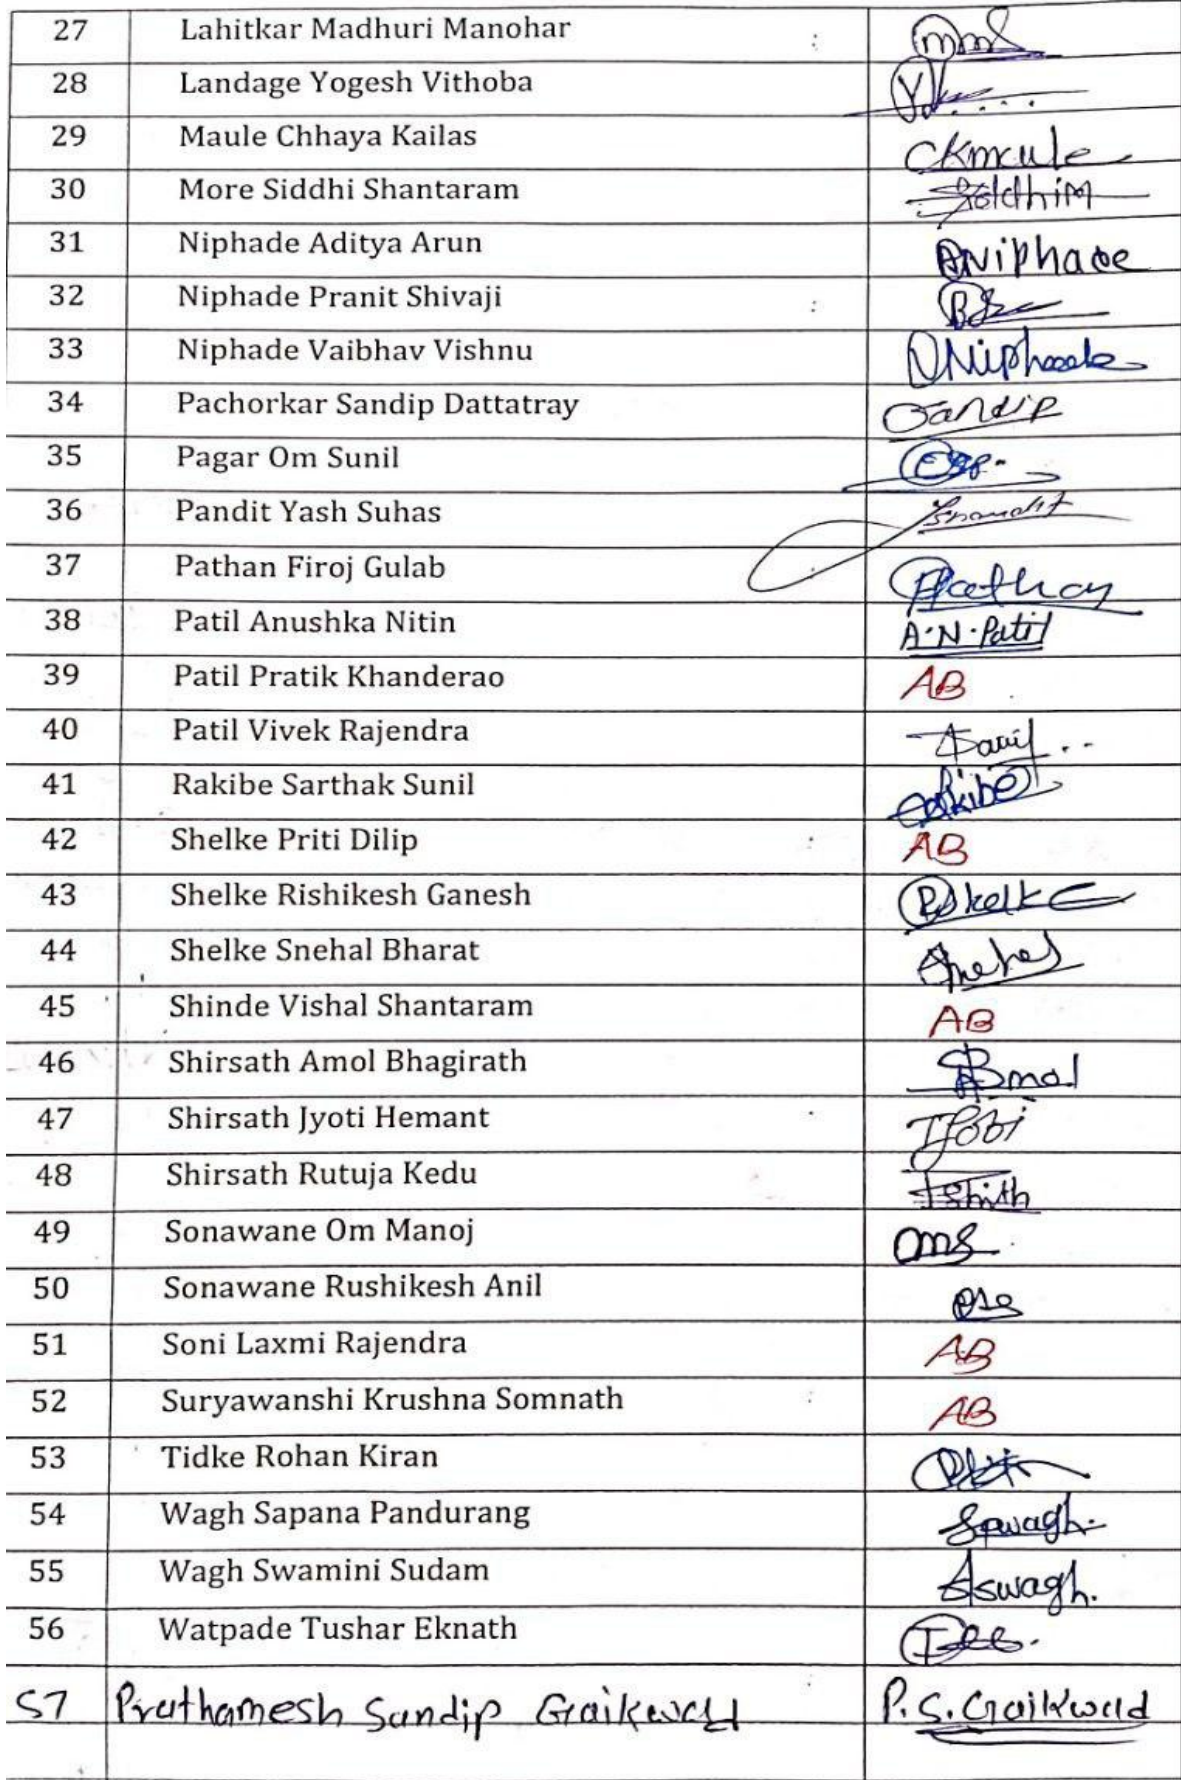 27 Lahitkar Madhuri Manohar mms
28 Landage Yogesh Vithoba
29 Maule Chhaya Kailas CKmaule
30 More Siddhi Shantaram
31 Niphade Aditya Arun ANiphade
32 Niphade Pranit Shivaji
33 Niphade Vaibhav Vishnu
34 Pachorkar Sandip Dattatray Sandip
35 Pagar Om Sunil
36 Pandit Yash Suhas
37 Pathan Firoj Gulab
38 Patil Anushka Nitin A.N.Patil
39 Patil Pratik Khanderao AB
40 Patil Vivek Rajendra
41 Rakibe Sarthak Sunil
42 Shelke Priti Dilip AB
43 Shelke Rishikesh Ganesh
44 Shelke Snehal Bharat
45 Shinde Vishal Shantaram AB
46 Shirsath Amol Bhagirath
47 Shirsath Jyoti Hemant
48 Shirsath Rutuja Kedu
49 Sonawane Om Manoj oms
50 Sonawane Rushikesh Anil
51 Soni Laxmi Rajendra AB
52 Suryawanshi Krushna Somnath AB
53 Tidke Rohan Kiran
54 Wagh Sapana Pandurang Spwagh.
55 Wagh Swamini Sudam Sswagh.
56 Watpade Tushar Eknath
57 Prathamesh Sandip Gaikwad P.S.Gaikwad